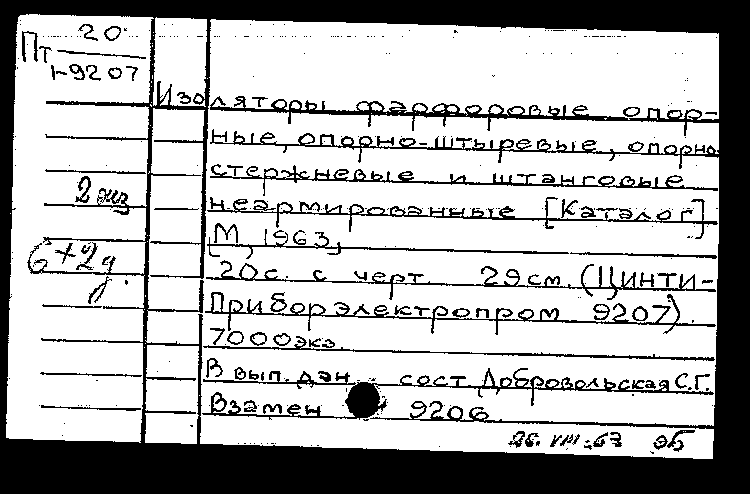 Пт 20
1-9207
Изоляторы фарфоровые опор-
ные, опорно-штыревые, опорно-
стержневые и штанговые
2 экз
неармированные [Каталог]
[М, 1963]
6+2д.
20с. с черт. 29см. (ЦИНТИ-
Приборэлектропром 9207).
7000экз.
В вып. дан. сост Добровольская С.Г.
Взамен 9206.
26.VIII.63 эб